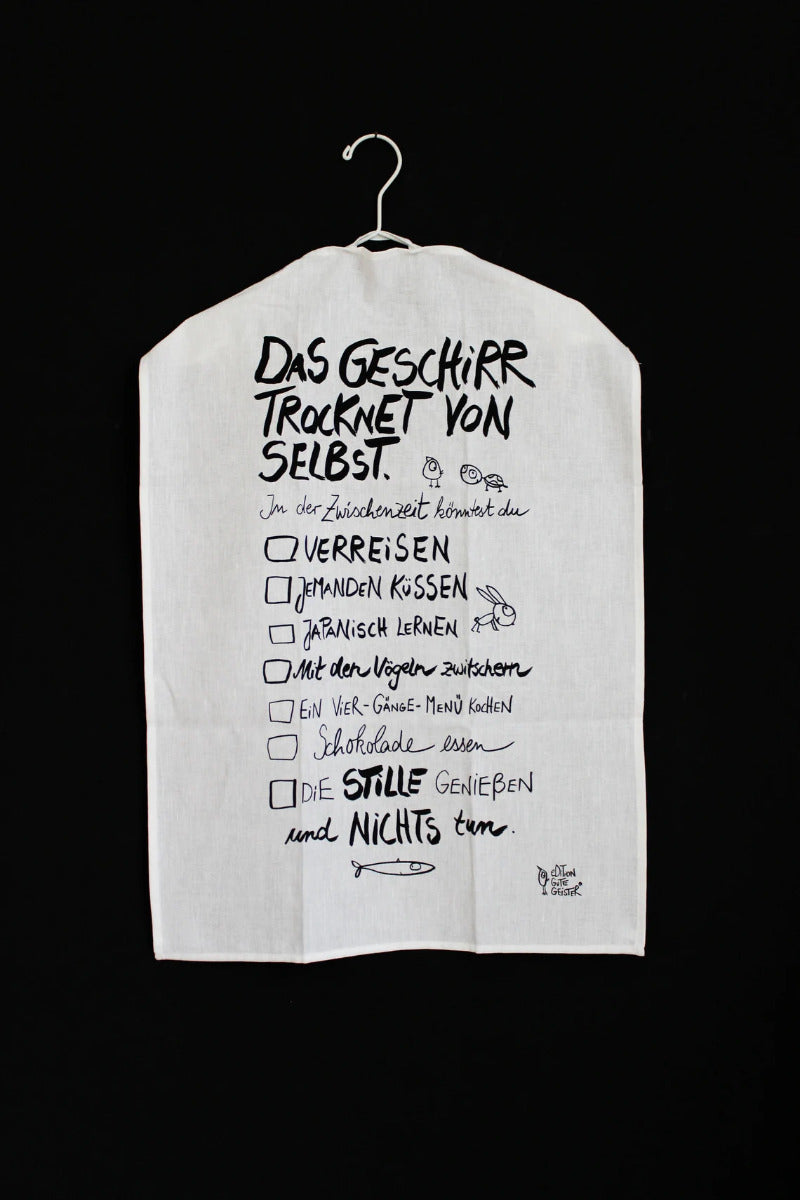 DAS GESCHiRR
TROCKNET VON
SELBST.
In der Zwischenzeit könntest du
VERREiSEN
JEMANDEN KÜSSEN
JAPANiSCH LERNEN
Mit den Vögeln zwitschern
EiN ViER-GÄNGE-MENÜ KOCHEN
Schokolade essen
DiE STiLLE GENiEßEN
und NiCHTS tun.
eDiTion
GUTE
GEiSTER